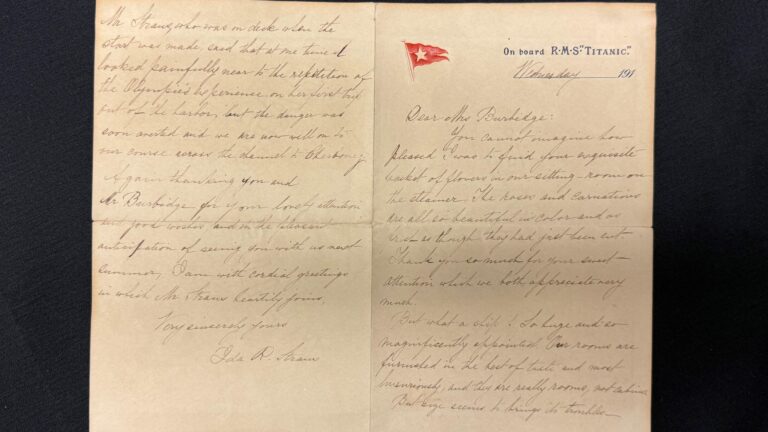 On board R·M·S "TITANIC."
Wednesday 191
Dear Mrs Burbidge:
You cannot imagine how
pleased I was to find your exquisite
basket of flowers in our sitting-room on
the steamer. The roses and carnations
are all so beautiful in color and as
fresh as though they had just been cut
Thank you so much for your sweet
attention which we both appreciate very
much.
But what a ship! So huge and so
magnificently appointed. Our rooms are
furnished in the best of taste and most
luxuriously, and they are really rooms, not cabins.
But size seems to bring its troubles
Mr. Straus, who was on deck when the
start was made, said that at one time it
looked painfully near to the repetition of
the Olympic's experience on her first trip
out of the harbor, but the danger was
soon averted and we are now well on to
our course across the channel to Cherbourg
Again thanking you and
Mr Burbidge for your lovely attention
and good wishes and in the pleasant
anticipation of seeing you with us next
summer, I am with cordial greetings
in which Mr Straus heartily joins,
Very sincerely yours
Ida R. Straus